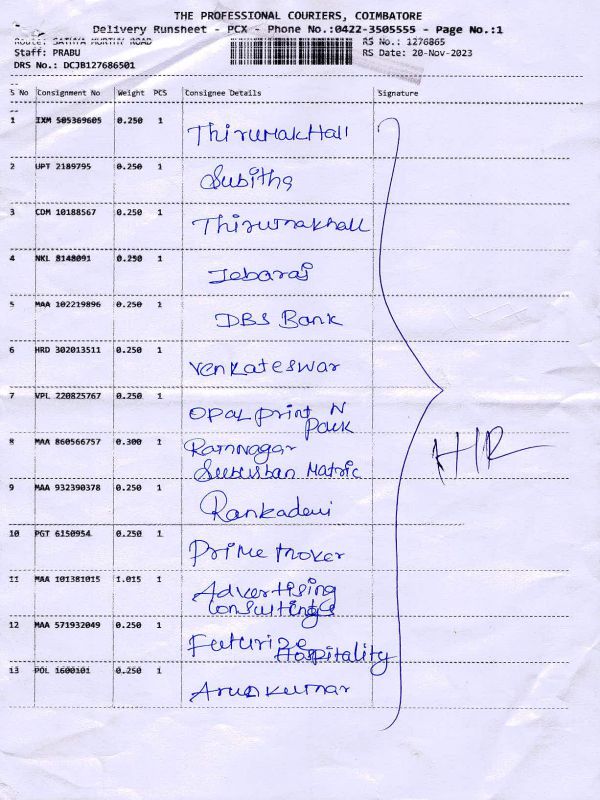 THE PROFESSIONAL COURIERS, COIMBATORE
Delivery Runsheet - PCX - Phone No.:0422-3505555 - Page No.:1
Route: SATHYA MURTHY ROAD
RS No.: 1276865
Staff: PRABU
RS Date: 20-Nov-2023
DRS No.: DCJB127686501
S No Consignment No Weight PCS Consignee Details Signature
1 IXM 505369605 0.250 1 Thirumakhall
2 UPT 2189795 0.250 1 Subitha
3 CDM 10188567 0.250 1 Thirumakhall
4 NKL 8148091 0.250 1 Jebaraj
5 MAA 102219896 0.250 1 DBS Bank
6 HRD 302013511 0.250 1 Venkateswar
7 VPL 220825767 0.250 1 Opal print N
Pack
8 MAA 860566757 0.300 1 Ramnagar
Suburban Matric
9 MAA 932390378 0.250 1 Rankadevi
10 PGT 6150954 0.250 1 Prime mover
11 MAA 101381015 1.015 1 Advertising
Consultings
12 MAA 571932049 0.250 1 Futurize
Hospitality
13 POL 1600101 0.250 1 Arunkumar